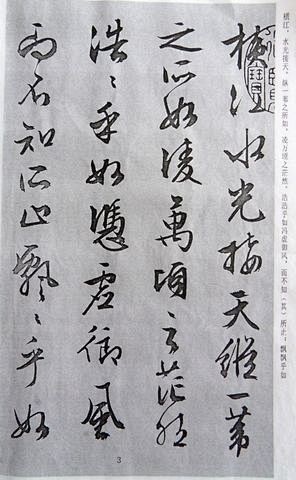 横江，水光接天。纵一苇之所如，凌万顷之茫然。浩浩乎如冯虚御风，而不知（其）所止；飘飘乎如
橫江水光接天縱一葦
之所如凌萬頃之茫然
浩〻乎如憑虛御風
而不知所止飄〻乎如
3